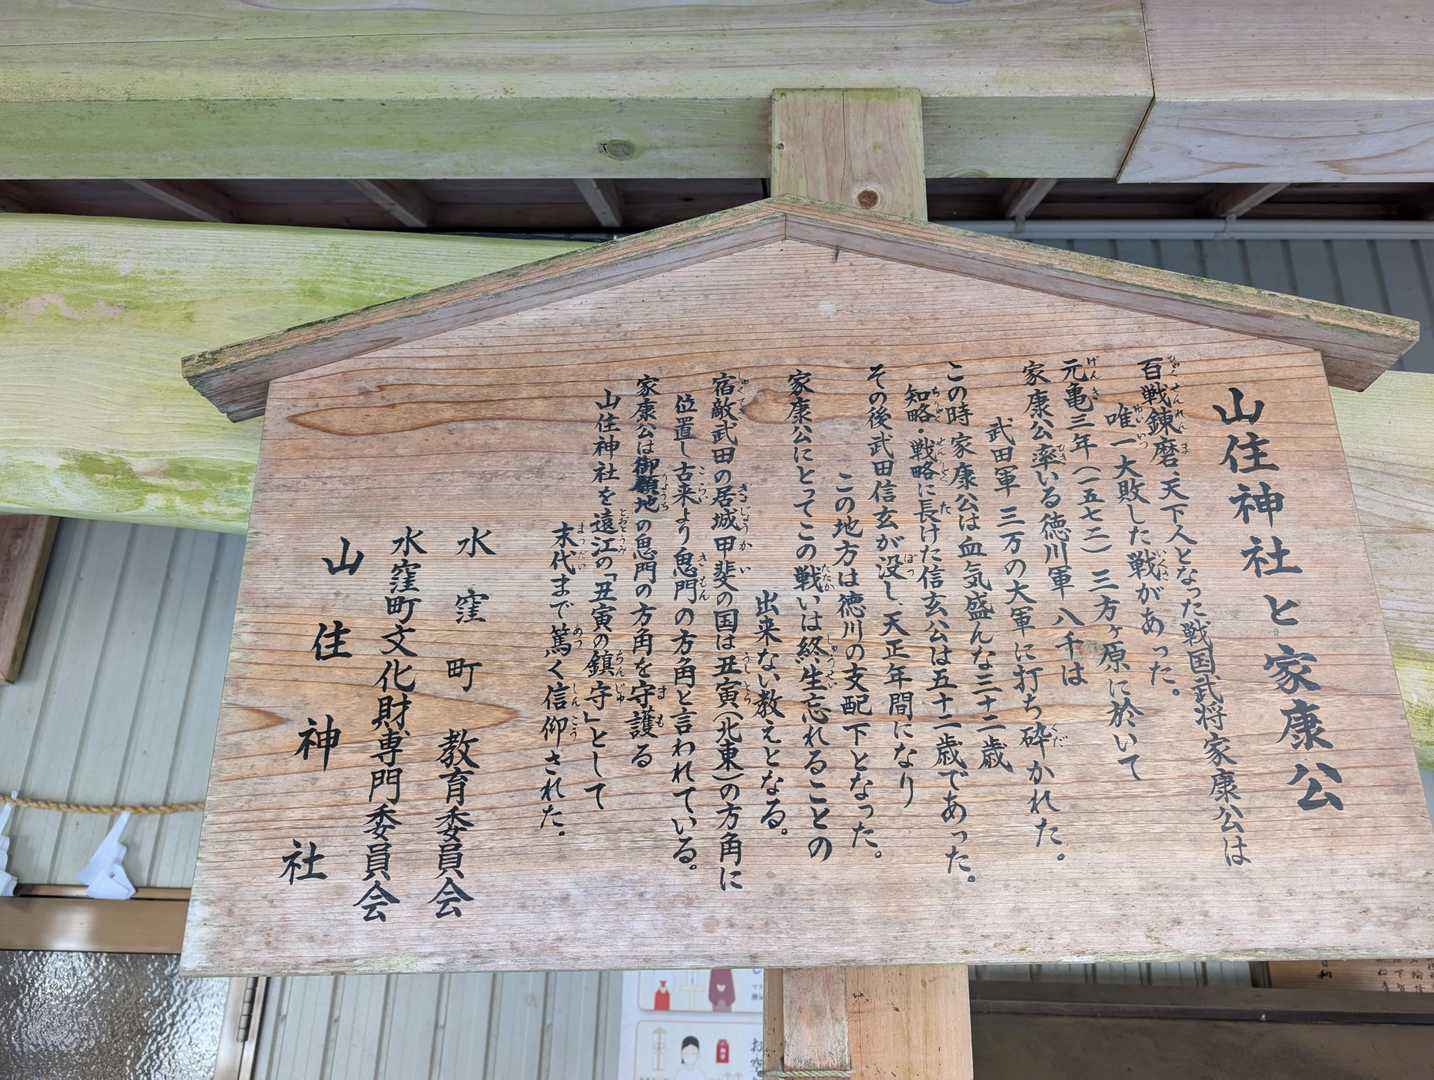 山住神社と家康公
百戦錬磨、天下人となった戦国武将家康公は
唯一大敗した戦があった。
元亀三年(一五七二)三方ヶ原に於いて
家康公率いる徳川軍 八千は
武田軍 三万の大軍に打ち砕かれた。
この時 家康公は血気盛んな三十二歳
知略・戦略に長けた信玄公は五十二歳であった。
その後武田信玄が没し 天正年間になり
この地方は徳川の支配下となった。
家康公にとってこの戦いは終生忘れることの
出来ない教えとなる。
宿敵武田の居城甲斐の国は丑寅(北東)の方角に
位置し古来より鬼門の方角と言われている。
家康公は御領地の鬼門の方角を守護る
山住神社を遠江の「丑寅の鎮守」として
末代まで篤く信仰された。
水窪町 教育委員会
水窪町文化財専門委員会
山住神社